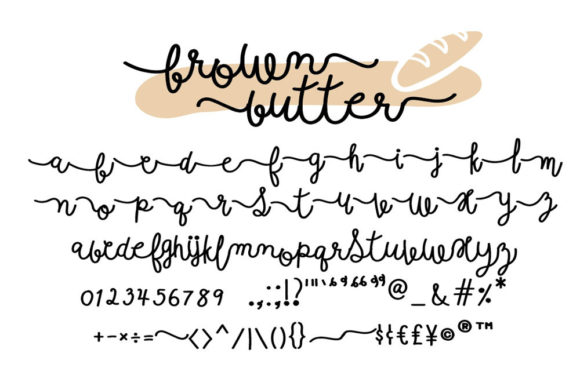 brown
butter
a b c d e f g h i j k l m
n o p q r s t u v w x y z
abcdefghijklmnopqrstuvwxyz
0123456789 .,:;!?'"'‘’“”@_&#%*
+-×÷=~<>^/|\(){}
$¢€£¥©®™